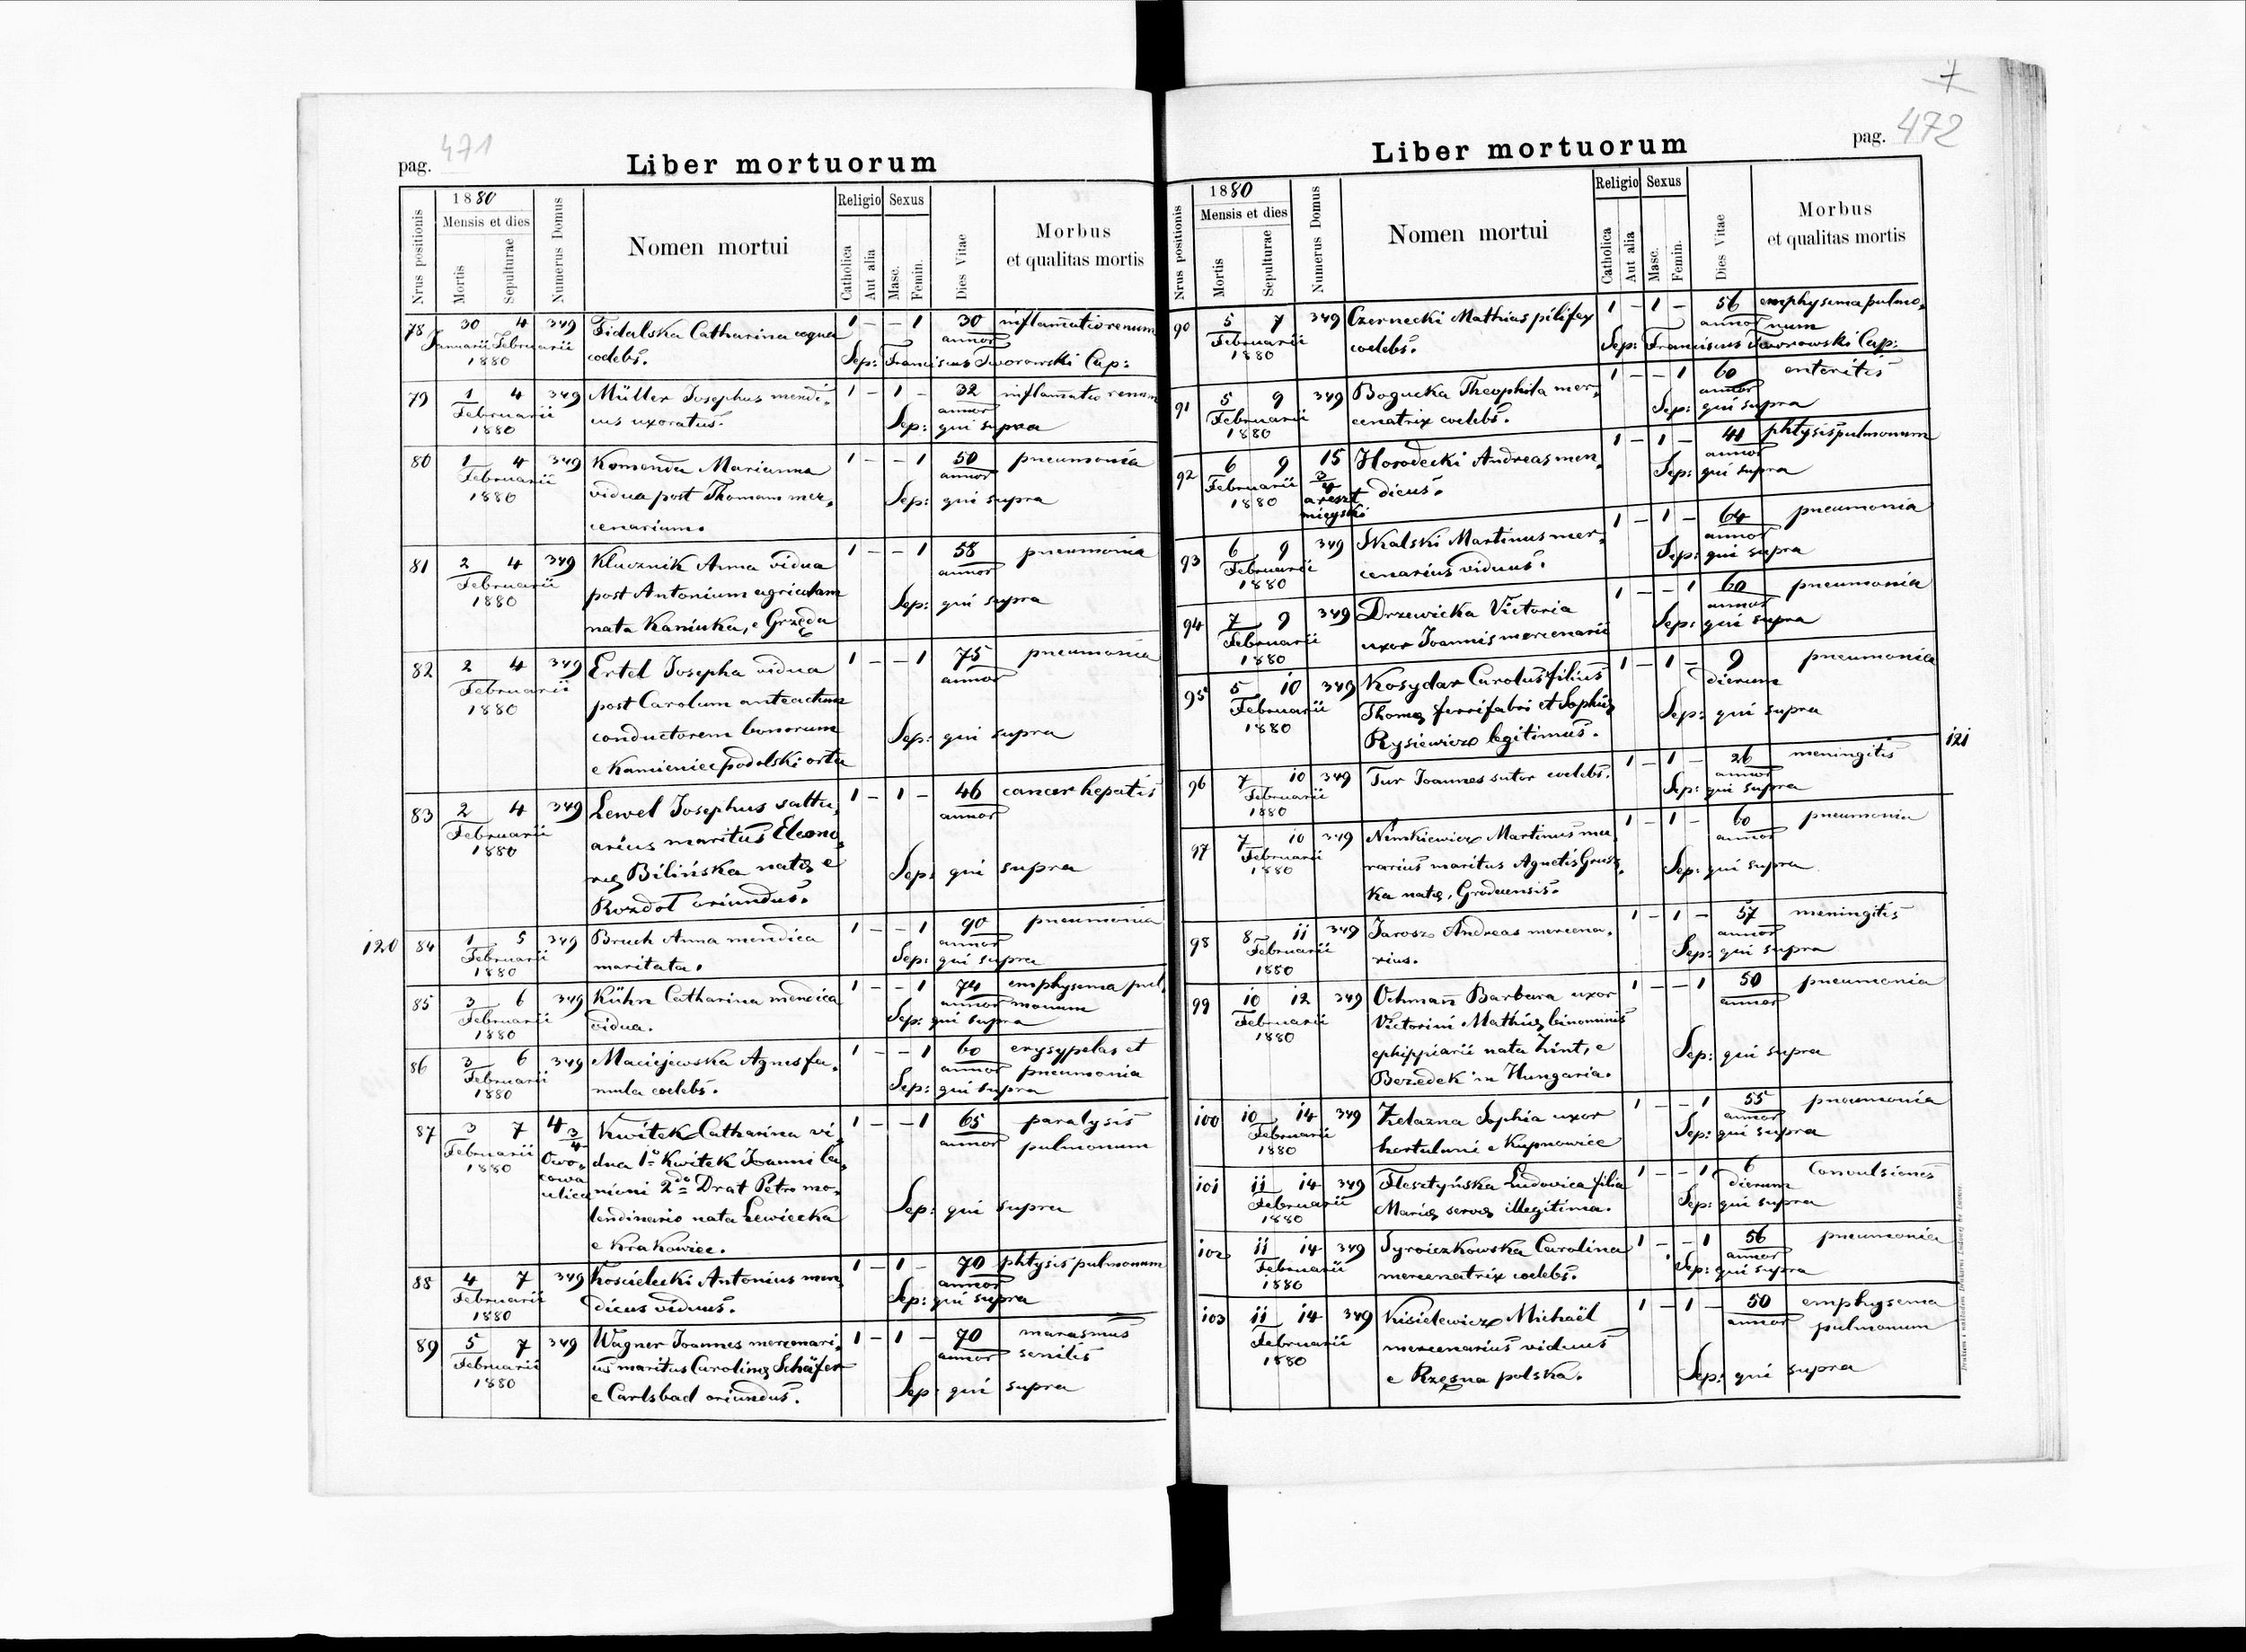 471
pag.
Liber mortuorum
1880
Mensis et dies
Religio
Sexus
Nrus positionis
Mortis
Sepulturae
Numerus Domus
Nomen mortui
Catholica
Aut alia
Masc.
Femin.
Dies Vitae
Morbus
et qualitas mortis
78 30 4 349 Fidalska Catharina coqua 1 – – 1 30 inflam̄atio renum
Januarii Februarii coelebs. annor
1880 Sep: Franciscus Tworowski Cap:
79 1 4 349 Müller Josephus mendi, 1 – 1 – 32 inflam̄atio renum
Februarii cus uxoratus. annor
1880 Sep: qui supra
80 1 4 349 Komenda Marianna 1 – – 1 50 pneumonia
Februarii vidua post Thomam mer, annor
1880 cenarium. Sep: qui supra
81 2 4 349 Klucznik Anna vidua 1 – – 1 58 pneumonia
Februarii post Antonium agricolam annor
1880 nata Kaniuka, e Grzęda Sep: qui supra
82 2 4 349 Ertel Josepha vidua 1 – – 1 75 pneumonia
Februarii post Carolum anteactum annor
1880 conductorem bonorum Sep: qui supra
e Kamieniec podolski orta
83 2 4 349 Lewel Josephus saltu, 1 – 1 – 46 cancer hepatis
Februarii arius maritus Eleono, annor
1880 ræ Bilińska natæ e Sep: qui supra
Rozdoł oriundus.
120 84 1 5 349 Bruch Anna mendica 1 – – 1 90 pneumonia
Februarii maritata. annor
1880 Sep: qui supra
85 3 6 349 Kühn Catharina mendica 1 – – 1 74 emphysema pul,
Februarii vidua. annor monum
1880 Sep: qui supra
86 3 6 349 Maciejewska Agnes fa, 1 – – 1 60 erysypelas et
Februarii mula coelebs. annor pneumonia
1880 Sep: qui supra
87 3 7 4 3/4 Kwitek Catharina vi, 1 – – 1 65 paralysis
Februarii Owo, dua 1o Kwitek Joanni la, annor pulmonum
1880 cowa nioni 2do Drat Petro mo,
ulica lendinario nata Lewicka Sep: qui supra
e Krakowiec.
88 4 7 349 Kościelecki Antonius men, 1 – 1 – 70 phtysis pulmonum
Februarii dicus viduus. annor
1880 Sep: qui supra
89 5 7 349 Wagner Joannes mercenari, 1 – 1 – 70 marasmus
Februarii us maritus Carolinæ Schäfer annor senilis
1880 e Carlsbad oriundus. Sep: qui supra
7
472
pag.
Liber mortuorum
1880
Mensis et dies
Religio
Sexus
Nrus positionis
Mortis
Sepulturae
Numerus Domus
Nomen mortui
Catholica
Aut alia
Masc.
Femin.
Dies Vitae
Morbus
et qualitas mortis
90 5 7 349 Czernecki Mathias pilifex 1 – 1 – 56 emphysema pulmo,
Februarii coelebs. annor num
1880 Sep: Franciscus Tworowski Cap:
91 5 9 349 Bogucka Theophila mer, 1 – – 1 60 enteritis
Februarii cenatrix coelebs. annor
1880 Sep: qui supra
92 6 9 15 3/4 Horodecki Andreas men, 1 – 1 – 41 phtysis pulmonum
Februarii areszt dicus. annor
1880 mieyski Sep: qui supra
93 6 9 349 Skalski Martinus mer, 1 – 1 – 64 pneumonia
Februarii cenarius viduus. annor
1880 Sep: qui supra
94 7 9 349 Drzewicka Victoria 1 – – 1 60 pneumonia
Februarii uxor Joannis mercenarii annor
1880 Sep: qui supra
95 5 10 349 Kosydar Carolus filius 1 – 1 – 9 pneumonia
Februarii Thomæ ferrifabri et Sophiæ dierum
1880 Rysiewicz legitimus. Sep: qui supra
121
96 7 10 349 Tur Joannes sutor coelebs. 1 – 1 – 26 meningitis
Februarii annor
1880 Sep: qui supra
97 7 10 349 Nimkiewicz Martinus mu, 1 – 1 – 60 pneumonia
Februarii rarius maritus Agnetis Grusz, annor
1880 ka natæ, Grodecensis. Sep: qui supra
98 8 11 349 Jarosz Andreas mercena, 1 – 1 – 57 meningitis
Februarii rius. annor
1880 Sep: qui supra
99 10 12 349 Ochman̄ Barbara uxor 1 – – 1 50 pneumonia
Februarii Victorini Mathiæ binominis annor
1880 ephippiarii nata Zint, e Sep: qui supra
Bezedek in Hungaria.
100 10 14 349 Zelazna Sophia uxor 1 – – 1 55 pneumonia
Februarii hortulani e Kupnowice annor
1880 Sep: qui supra
101 11 14 349 Flesztyńska Ludovica filia 1 – – 1 6 Convulsiones
Februarii Mariæ servæ illegitima. dierum
1880 Sep: qui supra
102 11 14 349 Syroiczkowska Carolina 1 – – 1 56 pneumonia
Februarii mercenatrix coelebs. annor
1880 Sep: qui supra
103 11 14 349 Kisielewicz Michaël 1 – 1 – 50 emphysema
Februarii mercenarius viduus annor pulmonum
1880 e Rzęsna polska. Sep: qui supra